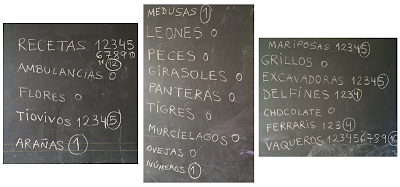 RECETAS 12345
678910
11 12
AMBULANCIAS 0
FLORES 0
TIOVIVOS 12345
ARAÑAS 1
MEDUSAS 1
LEONES 0
PECES 0
GIRASOLES 0
PANTERAS 0
TIGRES 0
MURCIELAGOS 0
OVEJAS 0
NÚMEROS 1
MARIPOSAS 12345
GRILLOS 0
EXCAVADORAS 12345
DELFINES 1234
CHOCOLATE 0
FERRARIS 1234
VAQUEROS 12345678910